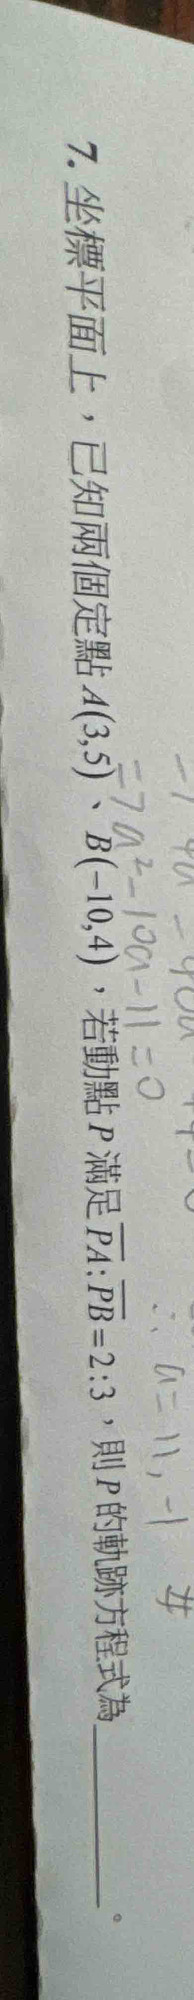 ∴ a = 11, -1 #
-7 a² - 10a - 11 = 0
7. 坐標平面上，已知兩個定點 A(3,5)、B(−10,4)，若動點 P 滿足 PA : PB = 2 : 3，則 P 的軌跡方程式為________。